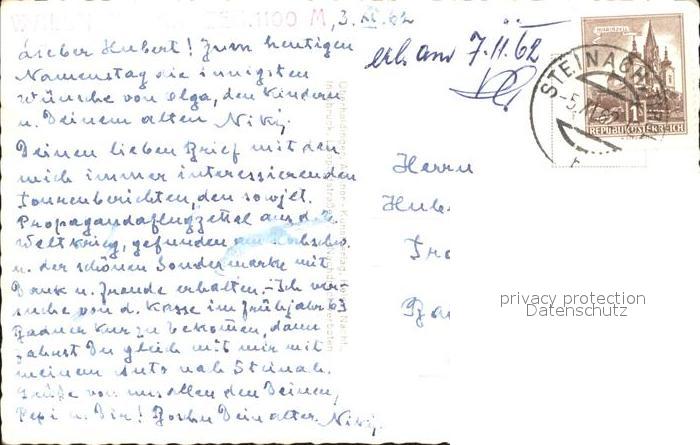 3. XI. 62
Lieber Hubert! Zum heutigen
Namenstag die innigsten
Wünsche von Olga, den Kindern
u. Deinem alten Niky.
Deinen lieben Brief mit den
mich immer interessierenden
Tourenberichten, den sowjet.
Propagandaflugzettel aus d. 2.
Weltkrieg, gefunden am Hochschw.
u. der schönen Sondermarke mit
Dank u. Freude erhalten. - Ich ver
suche von d. Kasse im Frühjahr 63
Badner Kur zu bekommen, dann
fährst Du gleich mit mir mit
meinem Auto nach Steinach.
Grüße von uns allen den Deinen,
Pepi u. Dir! Dein alter Niky.
erh. am 7.11.62
STEINACH
-5.XI.62
MARIAZELL
1
REPUBLIK ÖSTERREICH
Herrn
Hube
privacy protection
Datenschutz